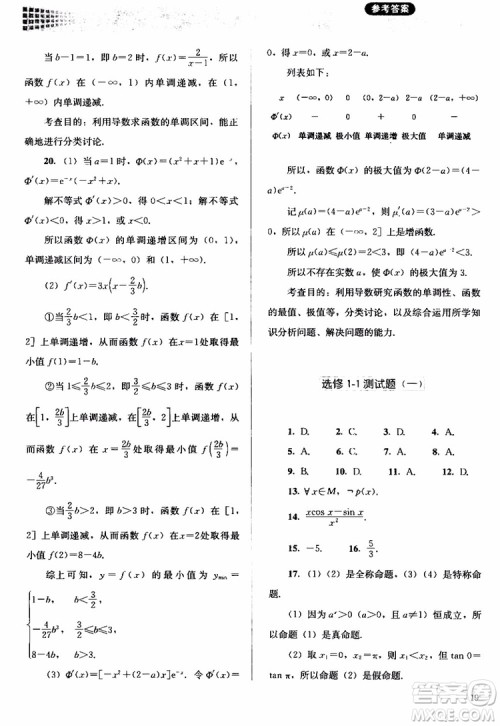 参考答案
当 b－1＝1，即 b＝2 时，f(x)＝2/(x－1)，所以
函数 f(x) 在（－∞，1）内单调递减，在（1，
＋∞）内单调递减.
考查目的：利用导数求函数的单调区间，能正
确地进行分类讨论.
20.（1）当 a＝1 时，Φ(x)＝(x²＋x＋1)e⁻ˣ，
Φ′(x)＝e⁻ˣ(－x²＋x). 解不等式
Φ′(x)＞0，得 0＜x＜1；解不等式
Φ′(x)＜0，
所以函数 Φ(x) 的单调递增区间为（0，1），
单调递减区间为（－∞，0），（1，＋∞）.
（2）f′(x)＝3x(x－2/3 b).
①当 2/3 b≤1，即 b≤3/2 时，函数 f(x) 在［1，
2］上单调递增，从而函数 f(x) 在 x＝1 时取得最
小值 1－b.
②当 1≤2/3 b≤2，即 3/2≤b≤3 时，函数 f(x)
在［1，2b/3］上单调递减，函数 f(x) 在［2b/3，2］
上单调递增，所以函数 f(x) 在 x＝2b/3 时取得最小
值 f(2b/3)＝－4/27 b³.
③当 2/3 b＞2，即 b＞3 时，函数 f(x) 在［1，
2］上单调递减，从而函数 f(x) 在 x＝2 时取得最
小值 f(2)＝8－4b.
综上可知，函数 f(x) 的最小值为 yₘᵢₙ＝
1－b，b≤3/2，
－4/27 b³，3/2
8－4b，b＞3.
（3）Φ′(x)＝e⁻ˣ[－x²＋(2－a)x]. 令 Φ′(x)＝
0，得 x＝0，或 x＝2－a.
列表如下：
x （－∞，0） 0
Φ′(x) － 0 ＋ 0 －
Φ(x) 单调递减 极小值 单调递增 极大值 单调递减
所以，函数 Φ(x) 的极大值为 Φ(2－a)＝(4－
记 μ(a)＝(4－
0，所以 μ(a) 在（－∞，2）上是增函数.
所以 μ(a)≤μ(2)＝2＜3，
所以不存在实数 a，使 Φ(x) 的极大值为 3.
考查目的：利用导数研究函数的单调性、函数
的最值、极值，分类讨论，以及综合运用所学知
识分析问题、解决问题的能力.
选修 1-1 测试题（一）
1. D. 2. C. 3. D. 4. A.
5. D. 6. C. 7. A. 8. A.
9. B. 10. D. 11. D. 12. A.
13. ∀x∈M，¬p(x).
14. (xcos x－sin x)/x².
15. －5. 16. 5/3.
17.（1）（2）是全称命题，（3）（4）是特称命
题.
（1）因为 aˣ＞0（a＞0 且 a≠1）恒成立，所
以命题（1）是真命题.
（2）取 x₁＝0，x₂＝π，x₁＜x₂，但 tan 0＝
答案圈
MXQE.COM